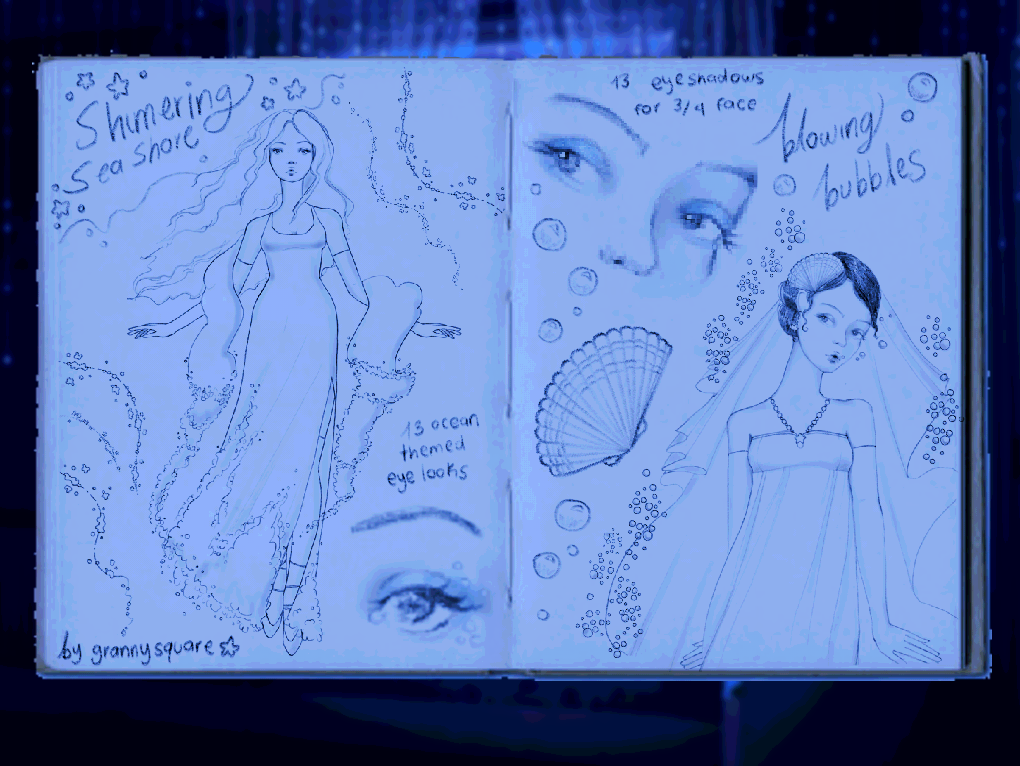 Shimering
Sea shore
13 ocean
themed
eye looks
by grannysquare
13 eyeshadows
for 3/4 face
blowing
bubbles